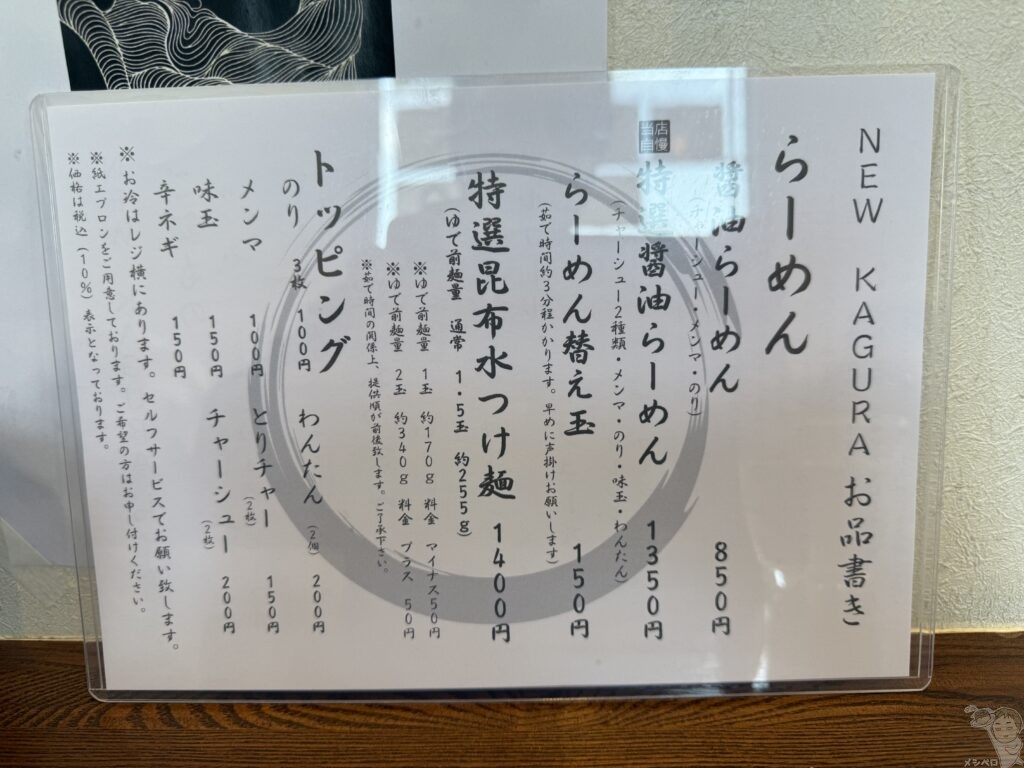 NEW KAGURA お品書き
らーめん
醤油らーめん 850円
(チャーシュー・メンマ・のり)
当店自慢
特選醤油らーめん 1350円
(チャーシュー2種類・メンマ・のり・味玉・わんたん)
らーめん替え玉 150円
(茹で時間約3分程かかります。早めに声掛けお願いします)
特選昆布水つけ麺 1400円
(ゆで前麺量 通常 1・5玉 約255g)
※ゆで前麺量 1玉 約170g 料金 マイナス50円
※ゆで前麺量 2玉 約340g 料金 プラス 50円
※茹で時間の関係上、提供順が前後致します。ご了承下さい。
トッピング
のり 3枚 100円 わんたん (2個) 200円
メンマ 100円 とりチャー (2枚) 150円
味玉 150円 チャーシュー (2枚) 200円
辛ネギ 150円
※お冷はレジ横にあります。セルフサービスでお願い致します。
※紙エプロンをご用意しております。ご希望の方はお申し付けください。
※価格は税込(10%)表示となっております。
メシペロ